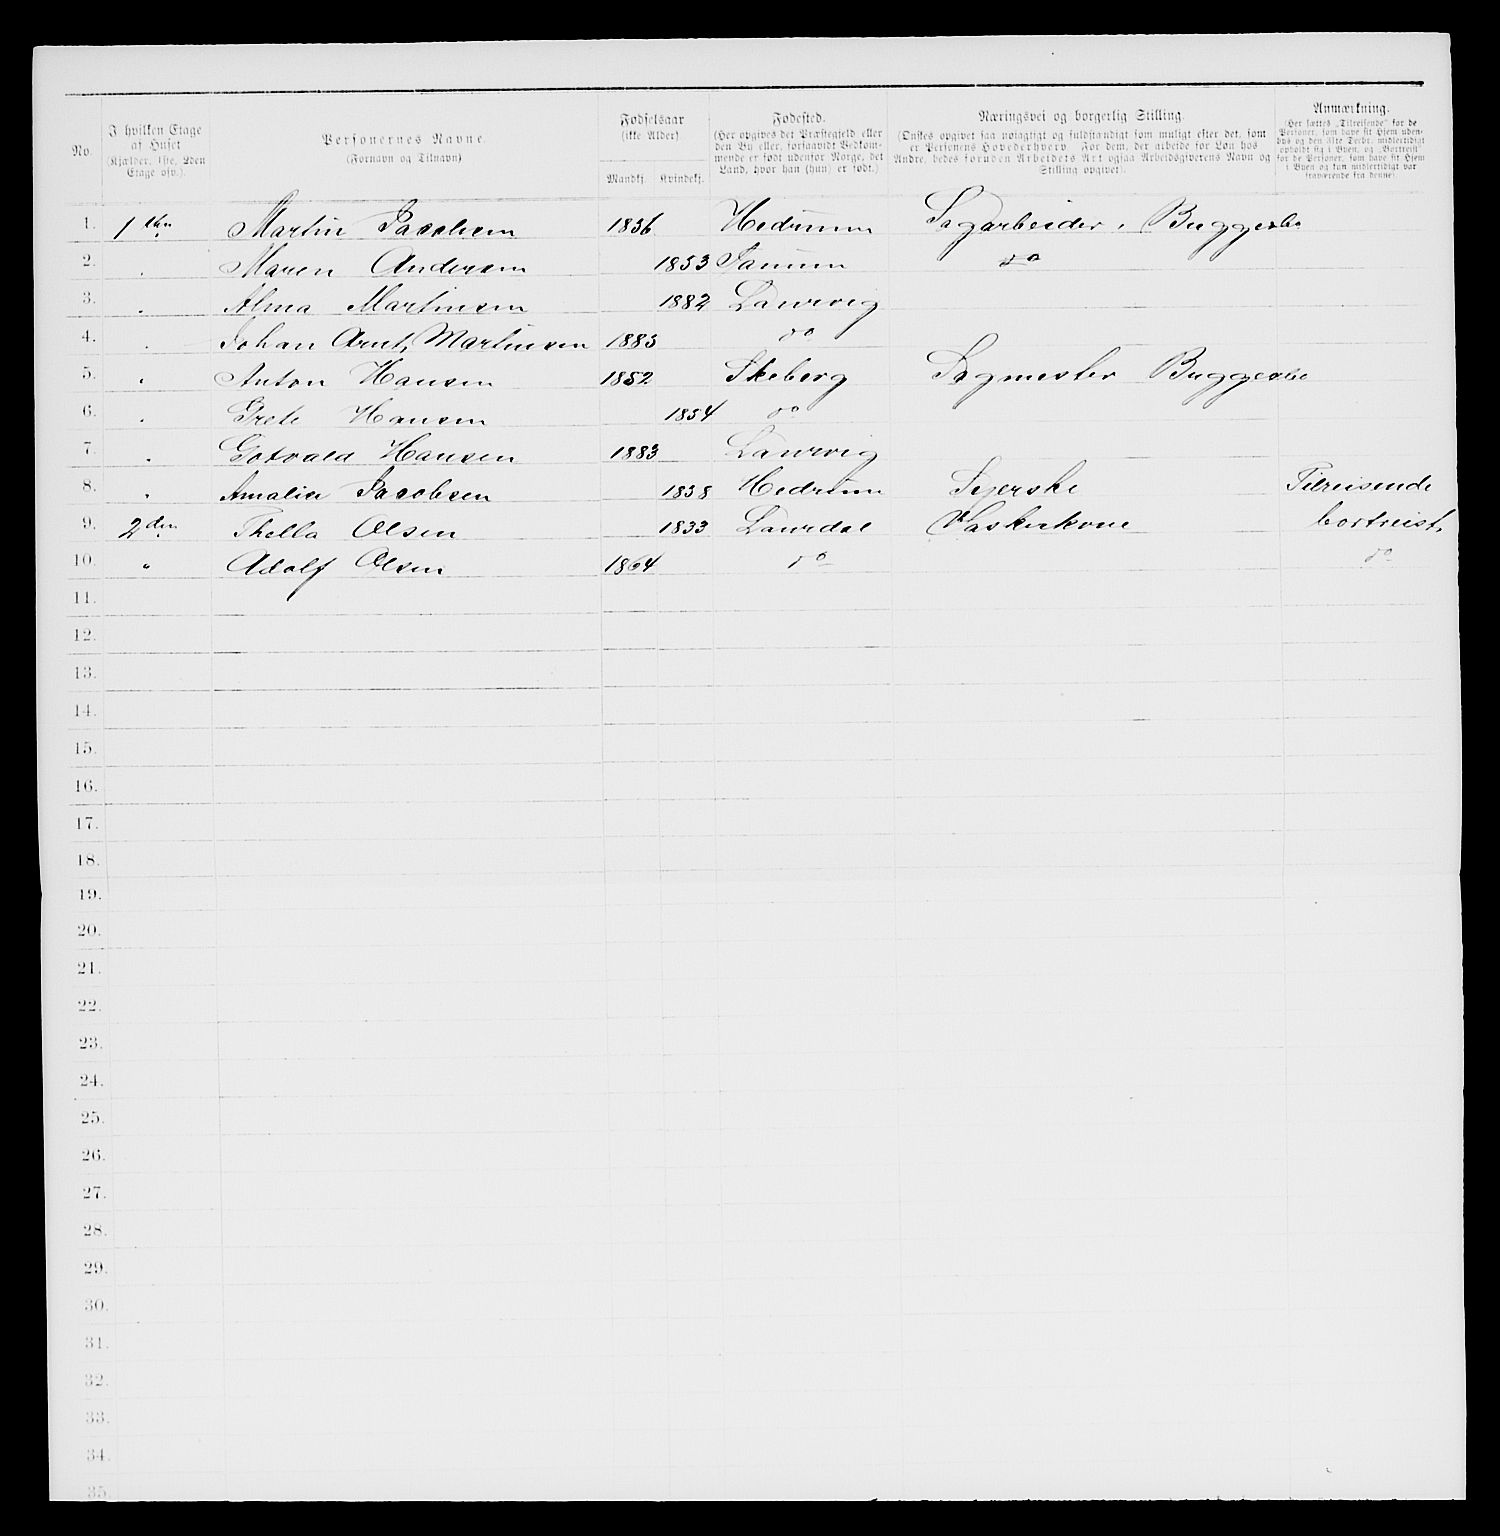 No.
I hvilken Etage af Huset (Kjælder, 1ste, 2den Etage osv.).
Personernes Navne.
(Fornavn og Tilnavn)
Fødselsaar
(ikke Alder)
Mandkj. Kvindekj.
Fødested.
(Her opgives det Præstegjeld eller
den By eller, forsaavidt Vedkom-
mende er født udenfor Norge, det
Land, hvor han (hun) er født.)
Næringsvei og borgerlig Stilling.
(Ønskes opgivet saa nøiagtigt og fuldstændigt som muligt efter det, som
er Personens Hovederhverv. For dem, der arbeide for Løn hos
Andre, bedes foruden Arbeidets Art ogsaa Arbeidsgiverens Navn og
Stilling opgivet).
Anmærkning.
(Her sættes „Tilreisende” for de
Personer, som have sit Hjem uden-
bys og den 31te Decbr. midlertidigt
opholdt sig i Byen, og „Bortreist”
for de Personer, som have sit Hjem
i Byen og kun midlertidigt var
fraværende fra denne).
1. 1ste Martin Jacobsen 1836 Hedrum Sagarbeider, Buggesbo
2. . Maren Andersen 1853 Tanum do
3. . Alma Martinsen 1882 Laurvig
4. . Johan Arnt, Martinsen 1885 do
5. . Anton Hansen 1852 Skeberg Sagmester Buggesbo
6. . Grete Hansen 1854 do
7. . Gotvald Hansen 1883 Laurvig
8. . Amalie Jacobsen 1838 Hedrum Syerske Tilreisende
9. 2den Thella Olsen 1833 Laurdal Vaskerkone bortreist,
10. " Adolf Olsen 1864 do do
11.
12.
13.
14.
15.
16.
17.
18.
19.
20.
21.
22.
23.
24.
25.
26.
27.
28.
29.
30.
31.
32.
33.
34.
35.